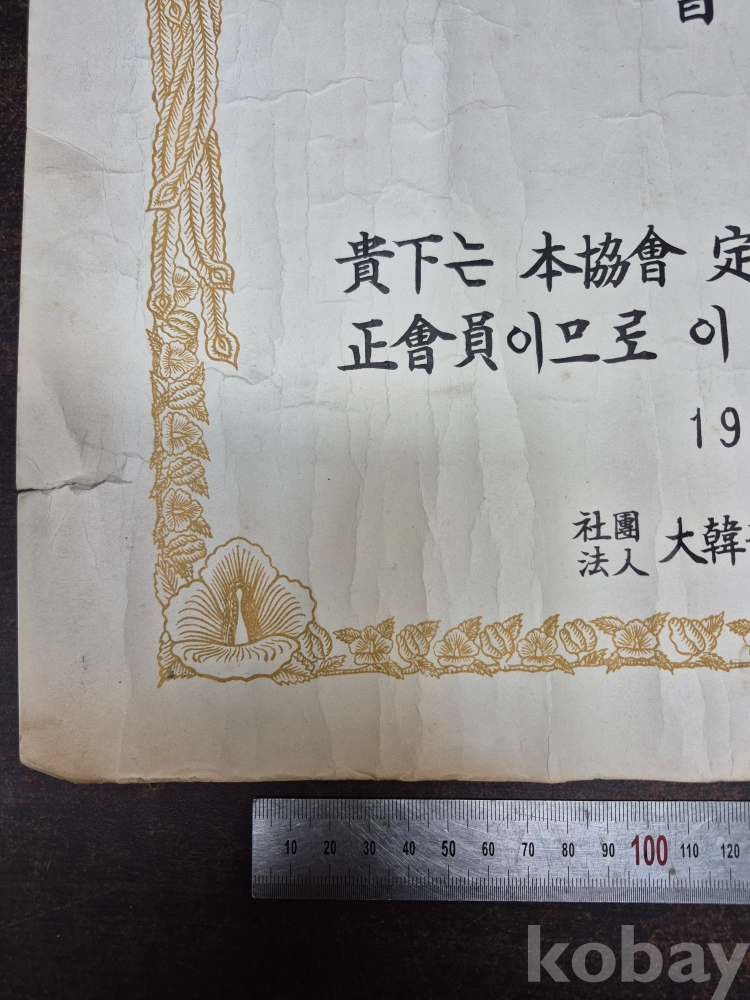 貴下는 本協會 定
正會員이므로 이
19
社團
法人 大韓
10 20 30 40 50 60 70 80 90 100 110 120
kobay